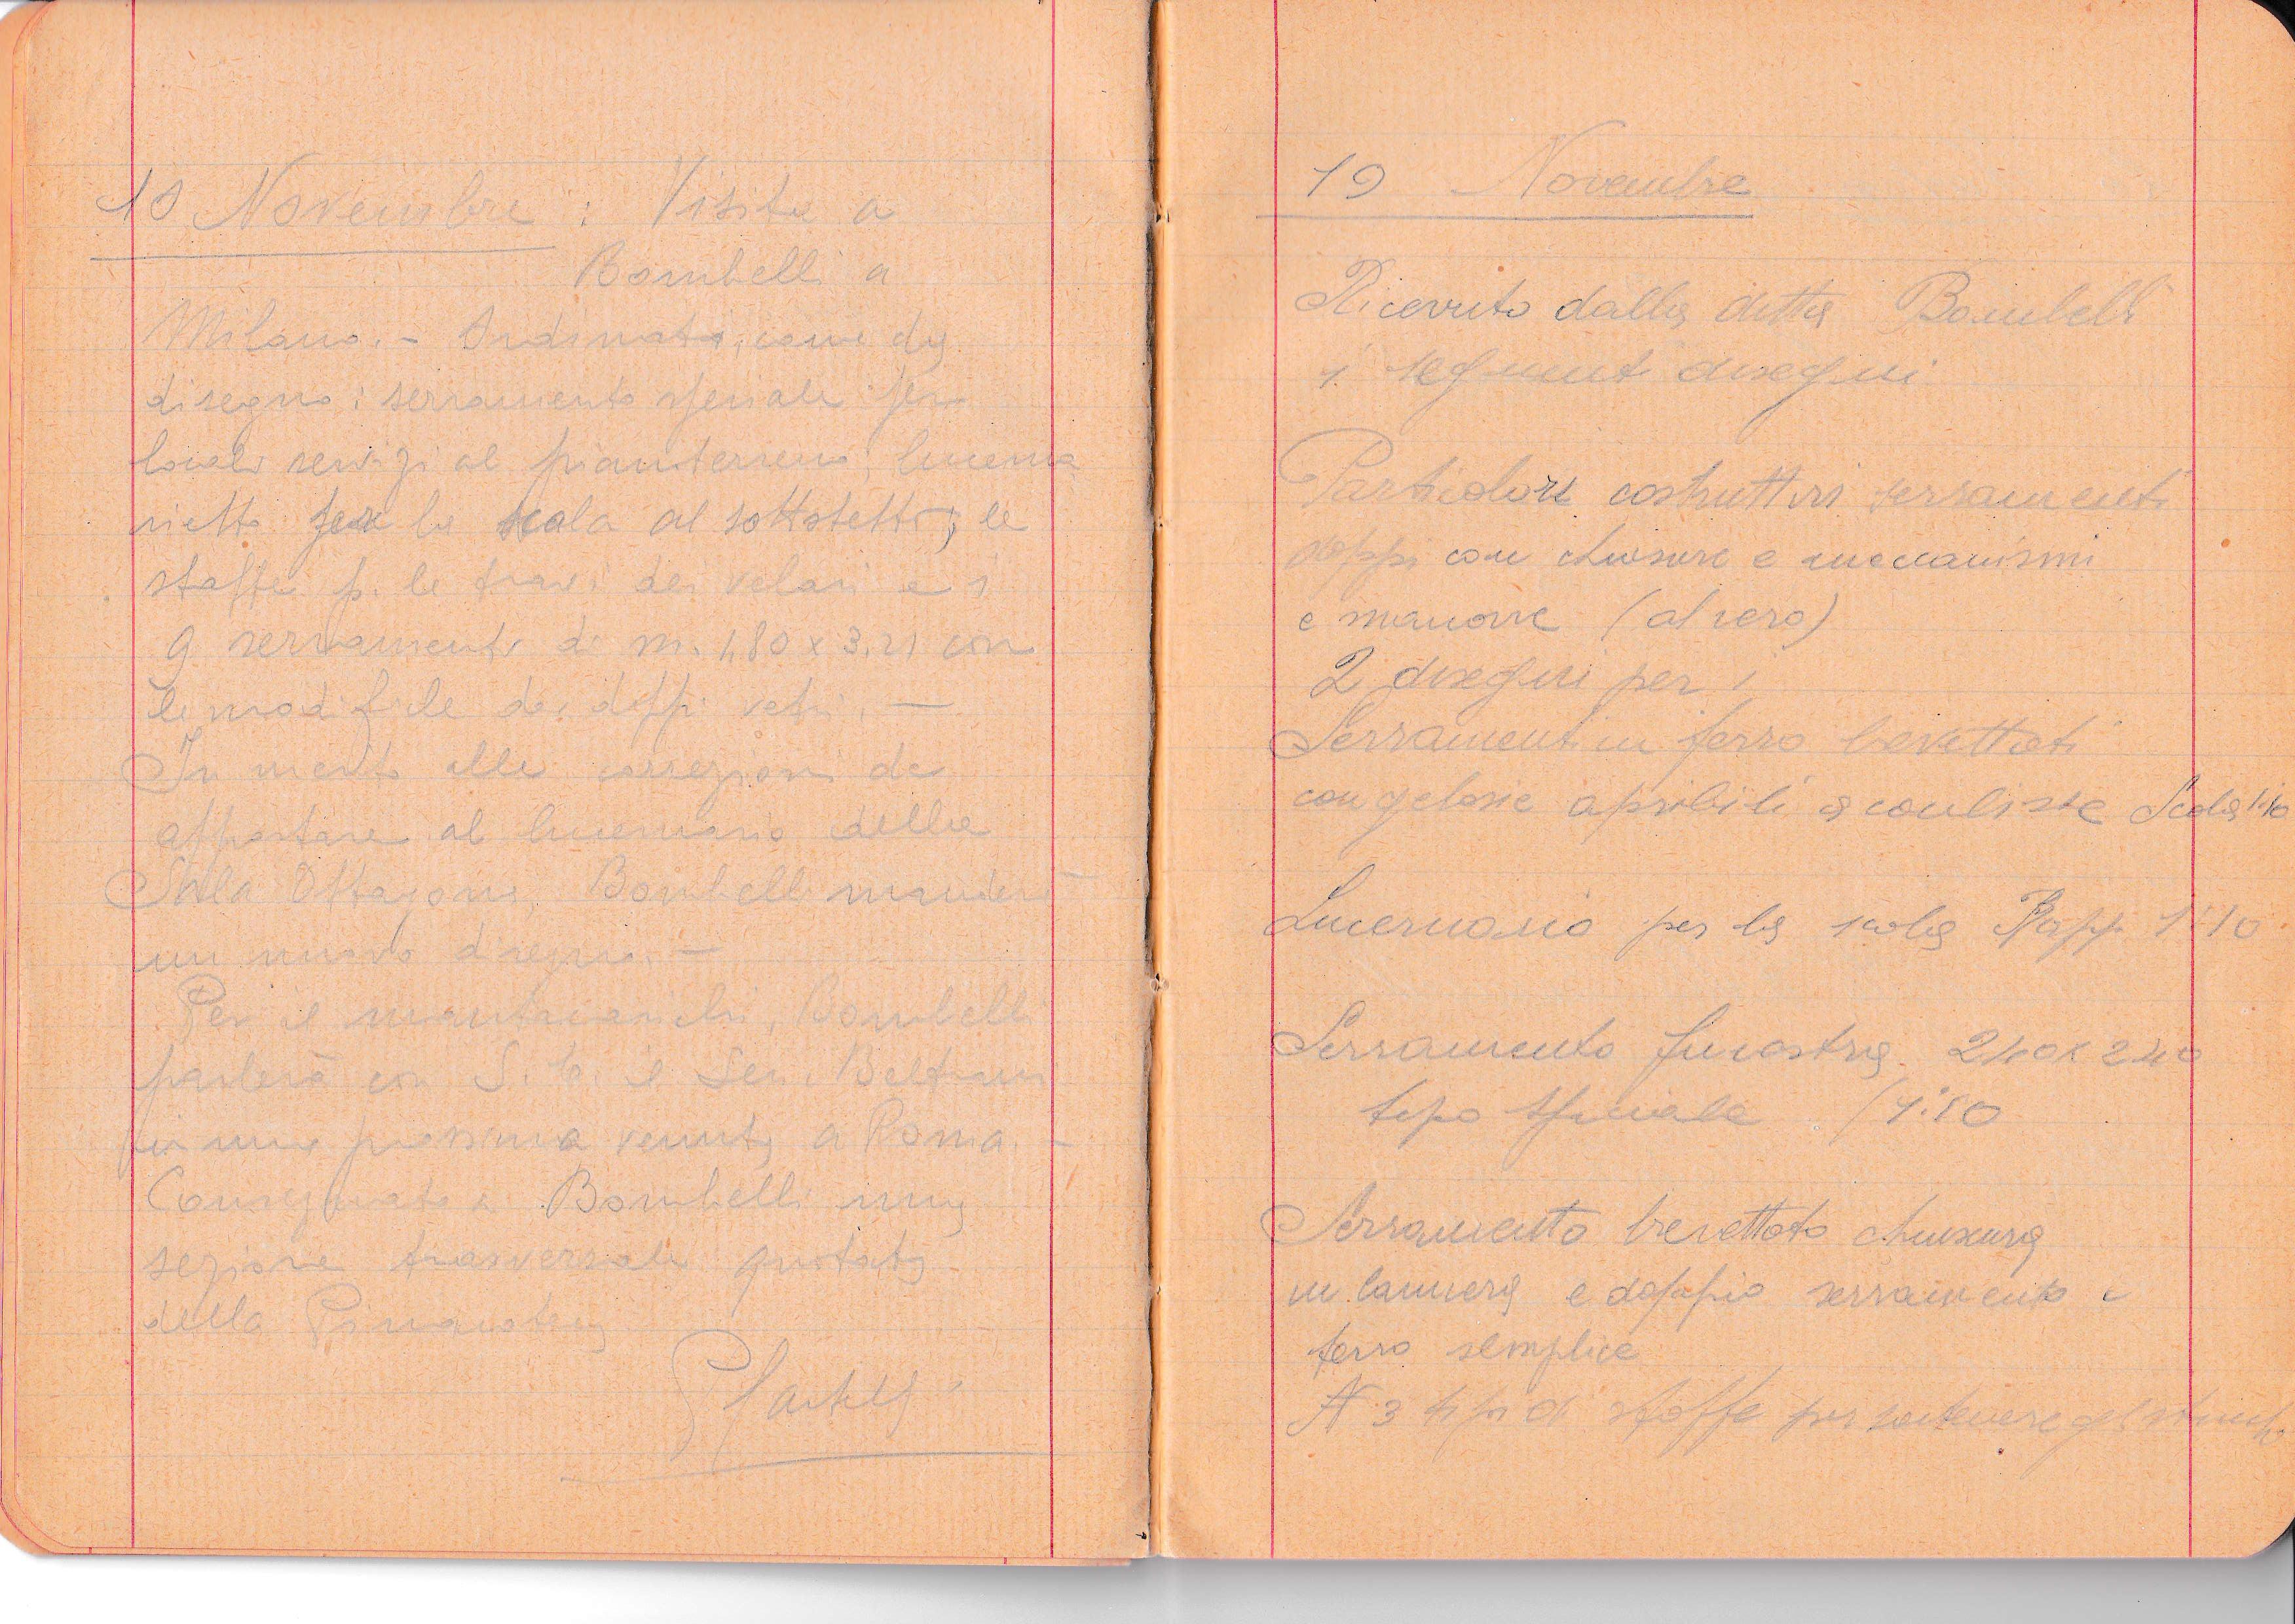 10 Novembre : Visita a
Bombelli a
Milano. - Ordinato, come da
disegno: serramento speciale per
locali servizi al pianterreno; lucerna
rietto per la scala al sottotetto; le
staffe p. le travi dei velari e i
9 serramenti di m. 1,80 x 3.21 con
le modifiche dei doppi vetri. —
In merito alle correzioni da
apportare al lucernario della
Sala Ottagona, Bombelli manderà
un nuovo disegno. —
Per il Bombelli
parlerà con S. E. il Sen. Beltrami
in una prossima venuta a Roma. -
Consegnato a Bombelli una
sezione trasversale quotata
della Pinacoteca
19 Novembre
Ricevuto dalla ditta Bombelli
i seguenti disegni
Particolari costruttivi serramenti
doppi con chiusure e meccanismi
e manovre (al vero)
2 disegni per i
Serramenti in ferro brevettati
con gelosie apribili a coulisse Scala 1:10
Lucernario per la scala Rapp 1:10
Serramento finestra 240 x 240
tipo speciale / 1:10
Serramento brevettato chiusura
in lamiera e doppio serramento e
ferro semplice
N 3 tipi di staffe per sostenere gl